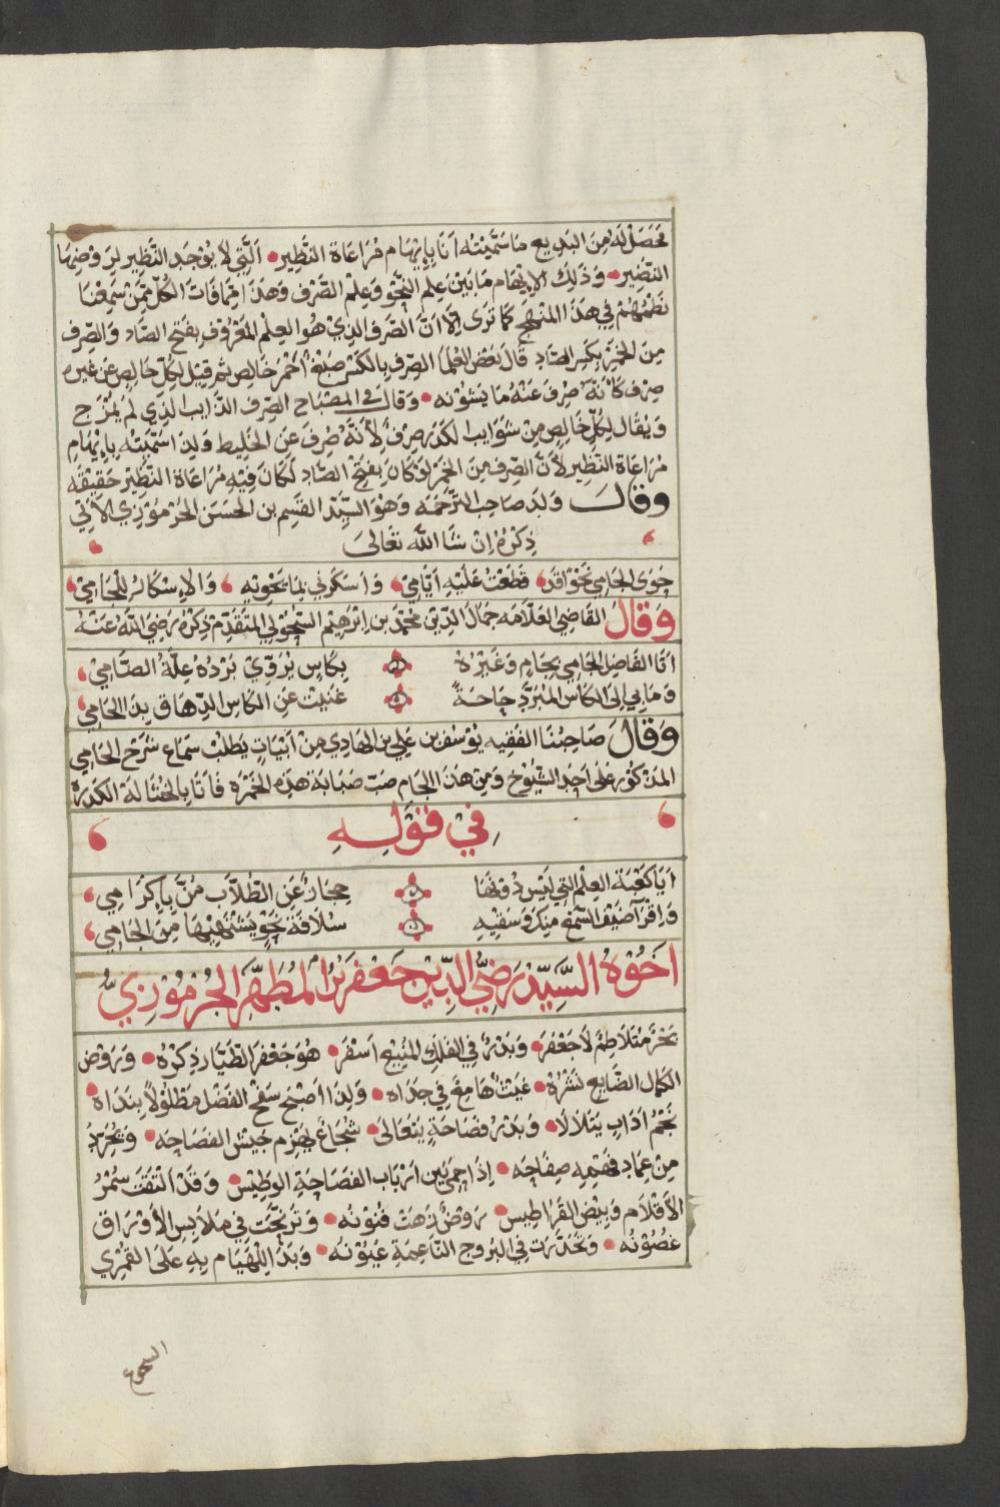 فحصل له من البديع ما سميته انا بايهام مراعاة النظير • التي لا يوجد النظير لروضها
النضير • وذلك الايهام ما بين علم النحو وعلم الصرف وهذا مما فات الكل ممن سمعنا
نظمهم في هذا المنهج كما ترى الا ان الصرف الذي هو العلم المعروف بفتح الصاد والصرف
من الخمر بكسر الصاد قال بعض العلما الصرف بالكسر صبغ احمر خالص ثم قيل لكل خالص عن غيره
صرف كانه صرف عنه ما يشوبه • وقال في المصباح الصرف الذي لم يمزج
ويقال لكل خالص من شوايب الكدر صرف لانه صرف عن الخليط ولذا سميته بايهام
مراعاة النظير لان الصرف من الخمر لو كان بفتح الصاد لكان فيه مراعاة النظير حقيقة
وقال ولد صاحب الترجمه وهو السيد القسم بن الحسن الجرموزي الاتي
ذكره ان شا الله تعالى
حوى الجامي نحوا قد قطعت عليه ايامي واسكرني بما يحويه والاسكار للجامي
وقال القاضي العلامه جمال الدين محمد بن ابرهيم السحولي المتقدم ذكره رضي الله عنه
اتا الفاضل الجامي بجام وغيره بكاس يروي برده علة الصامي
وما بي الى الكاس المبرد حاجة غنيت عن الكاس الدهاق بذا الجامي
وقال صاحبنا الفقيه يوسف بن علي بن الهادي من ابيات يطلب سماع شرح الجامي
المذكور على احد الشيوخ ومن هذا الجام صب صبابة هذه الخمره فاتا بالحثالة الكدره
في قوله
ايا كعبة العلم التي ليس دونها حجاز عن الطلاب من باكرامي
واقرا ضيف السمع منك وسقيه سلافة نحو يشتهيها من الجامي
اخوه السيد رضي الدين جعفر بن المطهر الجرموزي
بحر متلاطم لا جعفر • وبدر في الفلك المنيح اسفر • هو جعفر الطيار ذكره • وروض
الكمال الضايع نشره • غيث هامع في جداه • ولذا اصبح سفح الفضل مطلولا بنداه •
نجم اداب يتلالا • وبدر فصاحة يتعالى • شجاع يهزم جيش الفصاحه • ويجرد
من غماد فهمه صفاحه • اذا حمي بين ارباب الفصاحة الوطيس • وقد التفت سمر
الاقلام وبيض القراطيس • روض زهت فنونه • وترنحت في ملابس الاوراق
غصونه • وتحدرت في البروج الناعمة عيونه • وبذا الهيام به على القمري
السجوع